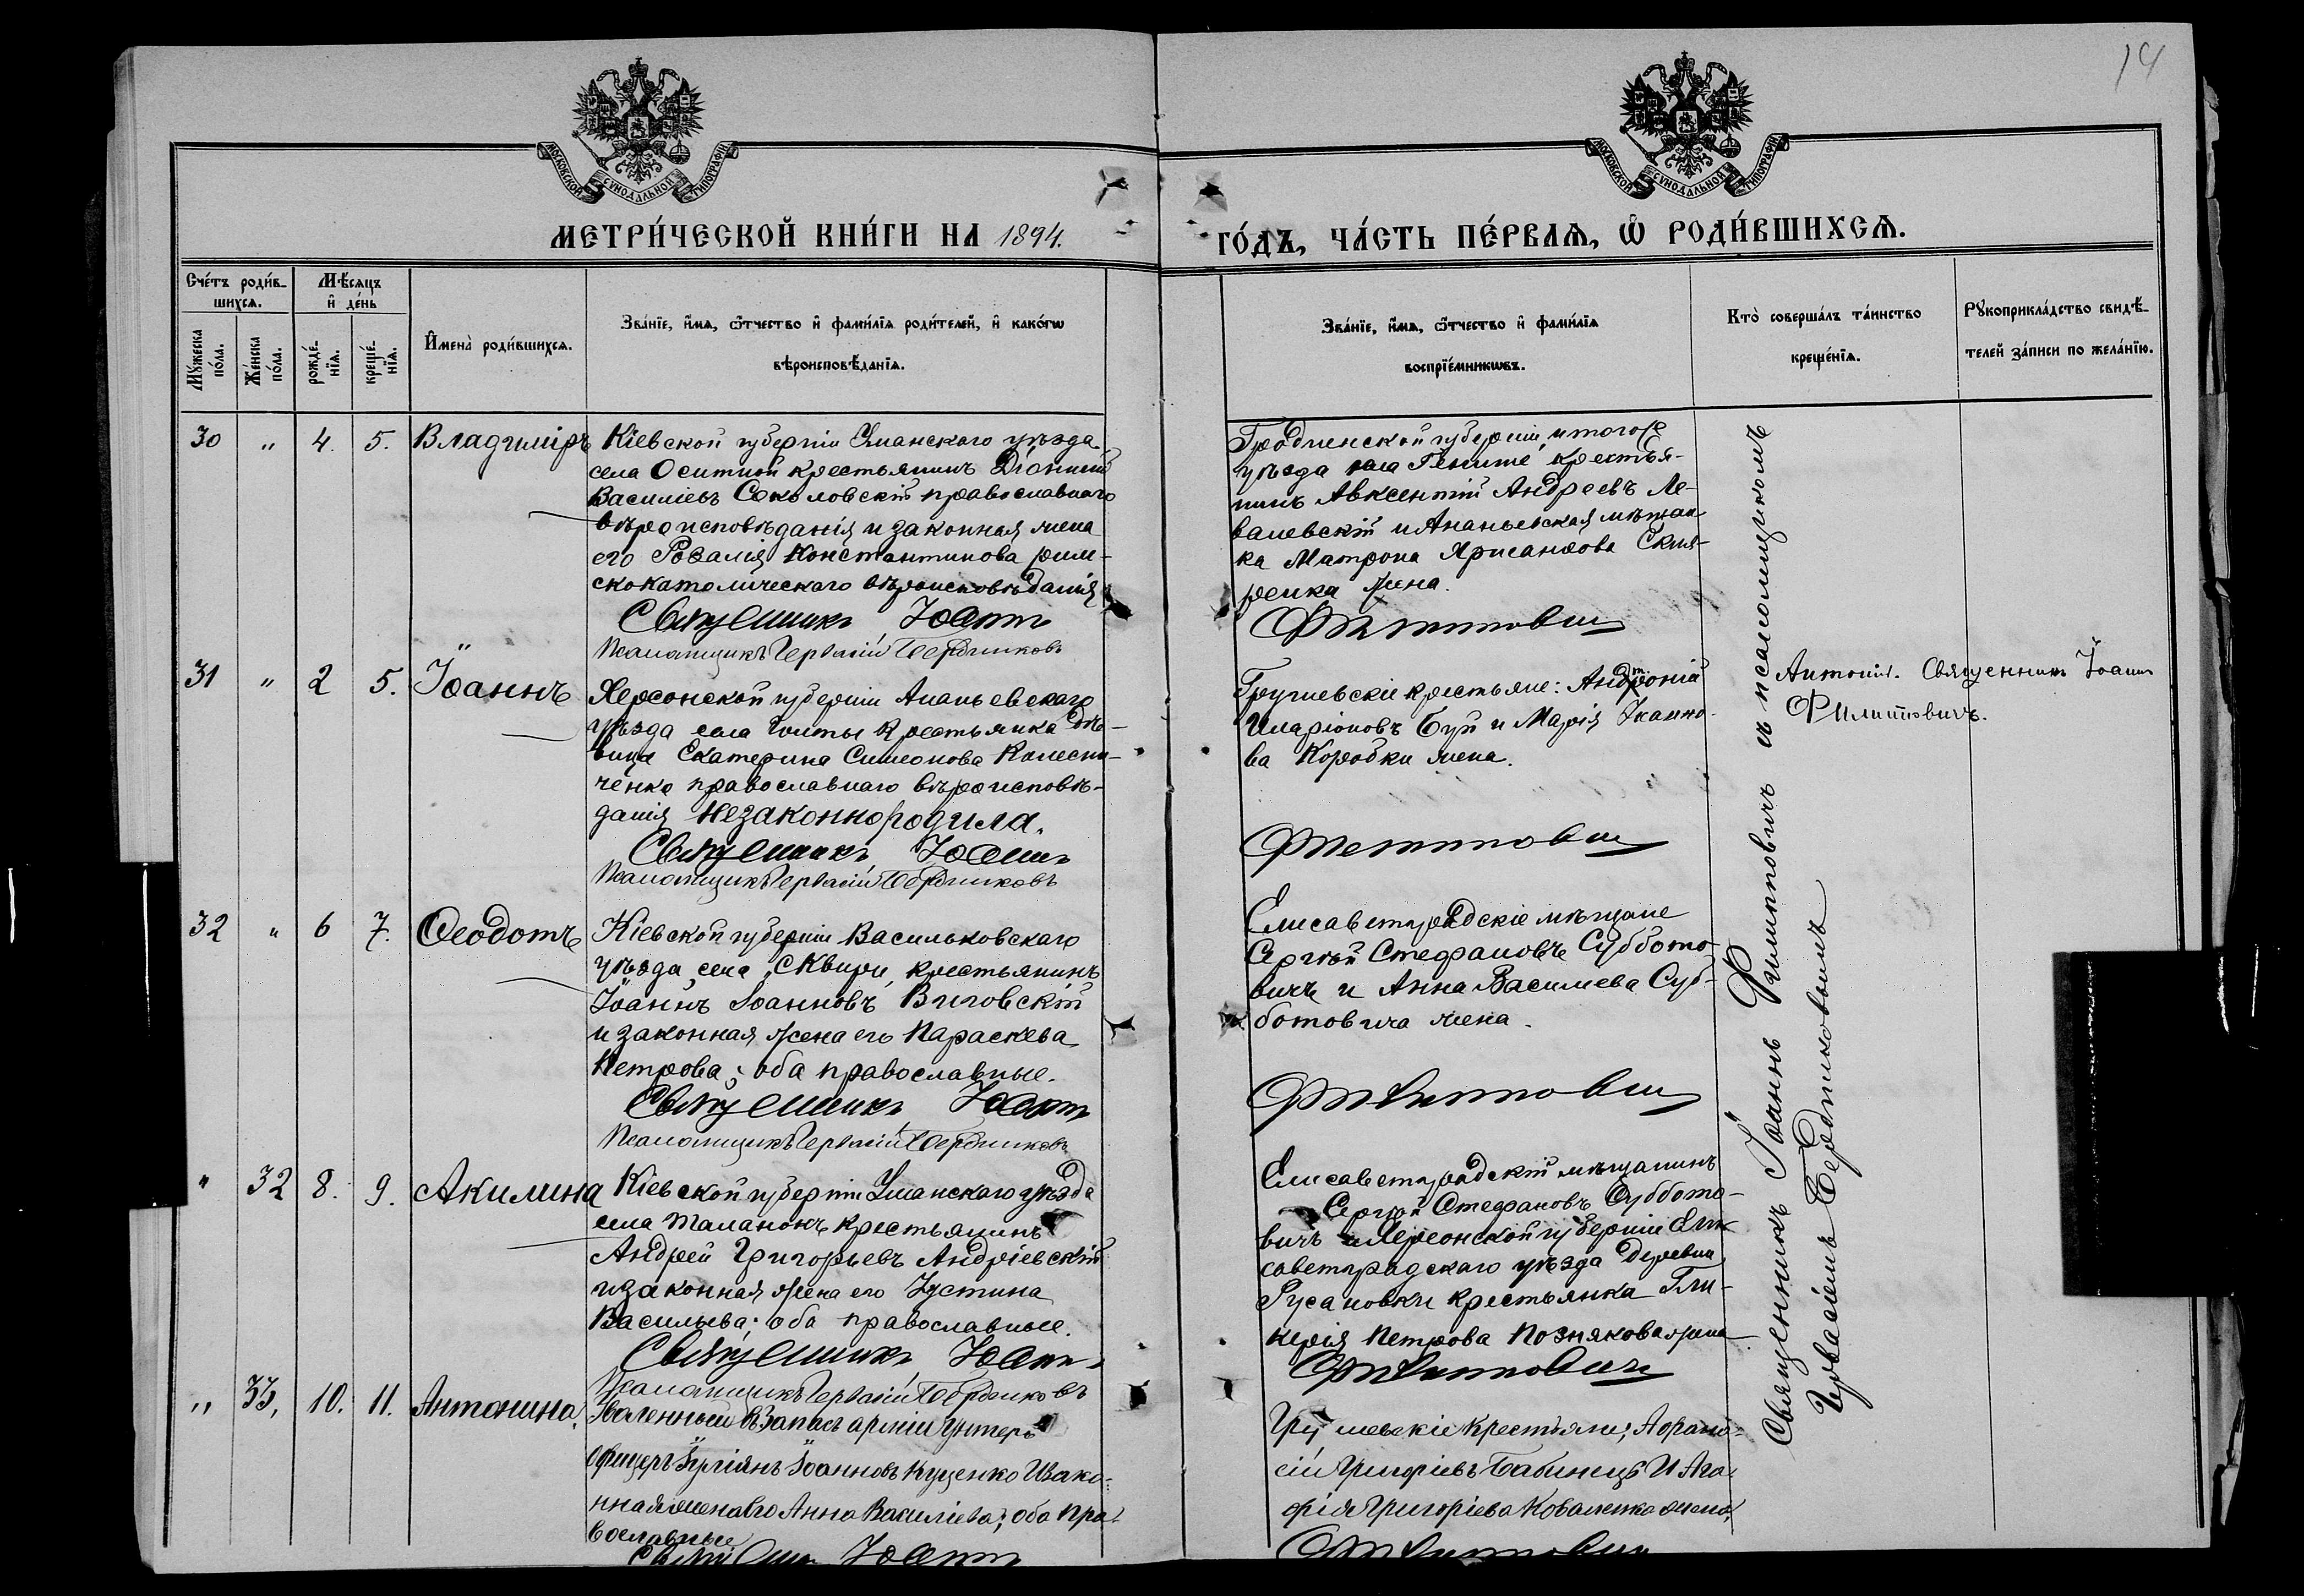 14
МОСКОВСКОЙ СѴНОДАЛЬНОЙ ТИПОГРАФІИ
МОСКОВСКОЙ СѴНОДАЛЬНОЙ ТИПОГРАФІИ
МЕТРИ́ЧЕСКОЙ КНИ́ГИ НА 1894.
ГО́ДЪ, ЧА́СТЬ ПЕ́РВАѦ, Ѽ РОДИ́ВШИХСѦ.
Сче́тъ роди́в-
шихсѧ.
Мѣ́сяцъ
и҆ де́нь
Мꙋ́жеска по́ла.
Же́нска по́ла.
рожде́-нїѧ.
креще́-нїѧ.
И҆мена̀ роди́вшихсѧ.
Зва́нїе, и҆́мѧ, ѻ҆́тчество и҆ фами́лїѧ роди́телей, и҆ како́гѡ
вѣроисповѣ́данїѧ.
Зва́нїе, и҆́мѧ, ѻ҆́тчество и҆ фами́лїѧ
воспрїе́мникѡвъ.
Кто̀ соверша́лъ та́инство
креще́нїѧ.
Рꙋкоприкла́дство свидѣ́-
телей за́писи по жела́нїю.
30 " 4. 5. Владиміръ
Кіевской губерніи Уманскаго уѣзда
села Оситной крестьянинъ Діонисій
Василіевъ Соколовскій православнаго
вѣроисповѣданія и законная жена
его Розалія Константинова рим-
скокатолическаго вѣроисповѣданія
Священникъ Іоаннъ
Псаломщикъ Гервасій Бердниковъ
Гродненской губерніи, и того же
уѣзда села крестья-
нинъ Авксентій Андреевъ Ле-
валевскій и Ананьевская мѣщан-
ка Матрона Скля-
ренка жена.
Филипповичъ
31 " 2 5. Іоаннъ
Херсонской губерніи Ананьевскаго
уѣзда села крестьянка дѣ-
вица Екатерина Симеонова Колесни-
ченко православнаго вѣроисповѣ-
данія незаконнородила.
Священникъ Іоаннъ
Псаломщикъ Гервасій Бердниковъ
Грушевскіе крестьяне: Андроній
Иларіоновъ Буй и Марія Іоанно-
ва Коробки жена.
Филипповичъ
Антоній. Священникъ Іоаннъ
Филипповичъ.
32 " 6 7. Ѳеодотъ
Кіевской губерніи Васильковскаго
уѣзда, села Сквири, крестьянинъ
Іоаннъ Іоанновъ Виговскій
и законная жена его Параскева
Петрова; оба православные.
Священникъ Іоаннъ
Псаломщикъ Гервасій Бердниковъ
Елисаветградскіе мѣщане
Сергѣй Стефановъ Суббото-
вичъ и Анна Василиева Суб-
ботовича жена.
Филипповичъ
" 32 8. 9. Акилина
Кіевской губерніи Уманскаго уѣзда
села Таланокъ крестьянинъ
Андрей Григорьевъ Андріевскій
и законная жена его Іустина
Васильева; оба православные.
Священникъ Іоаннъ
Псаломщикъ Гервасій Бердниковъ
Елисаветградскій мѣщанинъ
Сергѣй Стефановъ Суббото-
вичъ и Херсонской губерніи Ели-
саветградскаго уѣзда деревни
Русановки крестьянка Гли-
керія Петрова Познякова жена
Филипповичъ
" 33, 10. 11. Антонина,
Уволенный въ запасъ арміи унтеръ
офицеръ Іуліянъ Іоанновъ Куценко и зако-
нная жена его Анна Василіева; оба пра-
вославные
Священникъ Іоаннъ
Грушевскіе крестьяне; Аѳана-
сій Григоріевъ Бабинецъ и Ага-
фія Григоріева Коваленка жена
Филипповичъ
Священникъ Іоаннъ Филипповичъ съ псаломщикомъ
Гервасіемъ Бердниковымъ